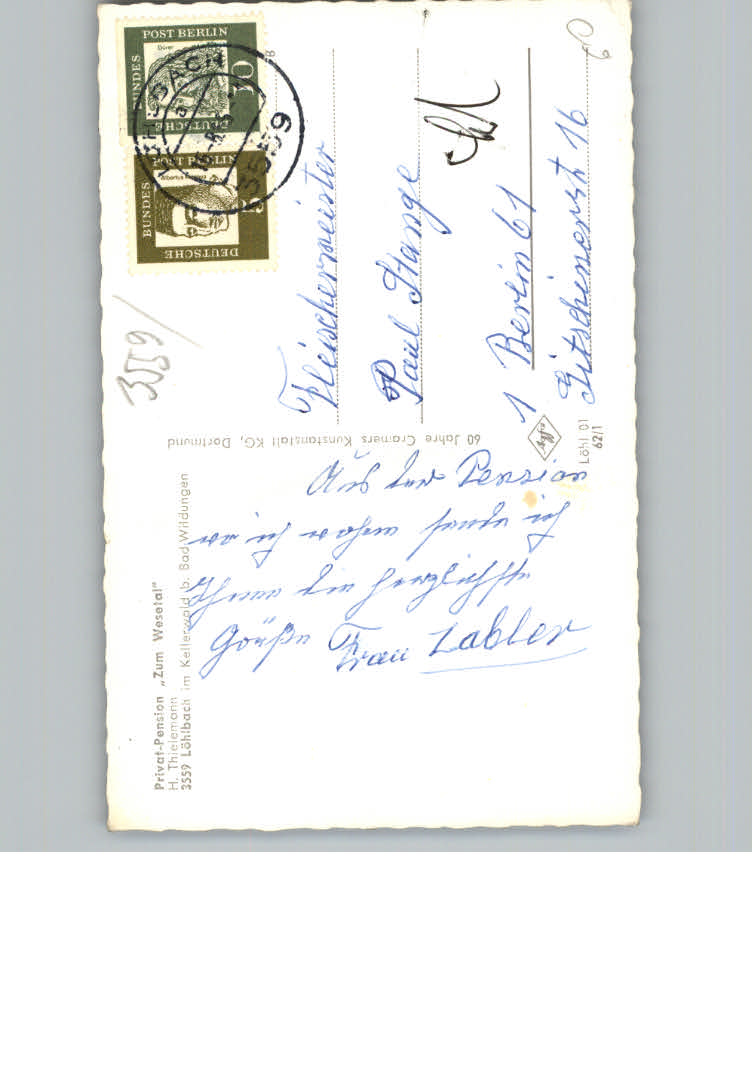 Privat-Pension „Zum Wesetal"
H. Thielemann
3559 Löhlbach im Kellerwald b. Bad Wildungen
Aus der Pension
wo ich wohne sende ich
Ihnen die herzlichste
Grüße Frau Zabler
60 Jahre Cramers Kunstanstalt KG, Dortmund
Löhl 01
62/1
DEUTSCHE BUNDESPOST BERLIN
Dürer
10
DEUTSCHE BUNDESPOST BERLIN
Albertus Magnus
5
LÖHLBACH
a
3559
3559/
Fleischermeister
Paul Stange
1 Berlin 61
Gitschinerstr 16